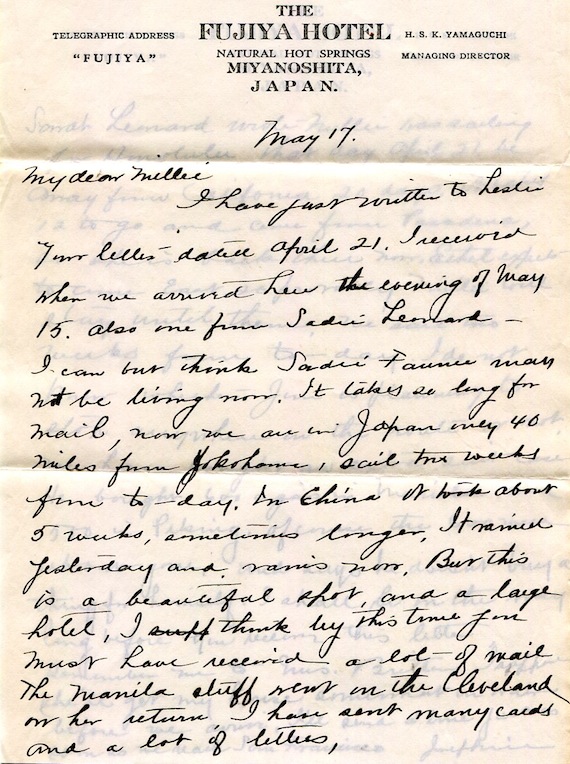 THE
TELEGRAPHIC ADDRESS FUJIYA HOTEL H. S. K. YAMAGUCHI
"FUJIYA" NATURAL HOT SPRINGS MANAGING DIRECTOR
MIYANOSHITA,
JAPAN.
May 17.
My dear Millie
I have just written to Leslie
Your letter dated April 21. I received
when we arrived here the evening of May
15. also one from Sadie Leonard –
I can but think Sadie Faunce may
not be living now. It takes so long for
mail, now we are in Japan only 40
miles from Yokohama, sail two weeks
from to-day. In China it took about
5 weeks, sometimes longer, It rained
yesterday and rains now, But this
is a beautiful spot, and a large
hotel, I think by this time you
must have received a lot of mail
The Manila stuff went on the Cleveland
on her return, I have sent many cards
and a lot of letters,